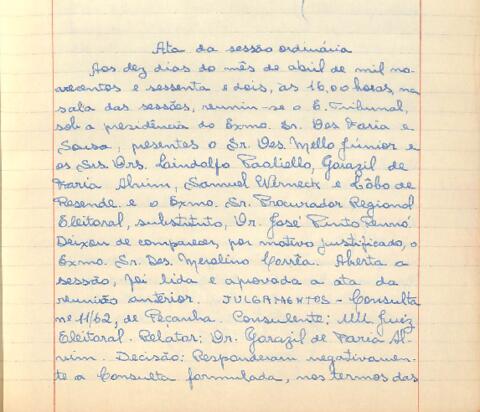 Ata da sessão ordinária
Aos dez dias do mês de abril de mil no-
vecentos e sessenta e dois, às 16,00 horas, na
sala das sessões, reuniu-se o E. Tribunal,
sob a presidência do Exmo. Sr. Des. Faria e
Sousa, presentes o Sr. Des. Mello Júnior e
os Srs. Drs. Lindolfo Paoliello, Garazil de
Faria Alvim, Samuel Werneck e Lôbo de
Resende e o Exmo. Sr. Procurador Regional
Eleitoral, substituto, Dr. José Pinto Renno.
Deixou de comparecer, por motivo justificado, o
Exmo. Sr. Des. Merolino Corrêa. Aberta a
sessão, foi lida e aprovada a ata da
reunião anterior. JULGAMENTOS - Consulta
nº 11/62, de Peçanha. Consulente: MM. Juiz
Eleitoral. Relator: Dr. Garazil de Faria Al-
vim. Decisão: Responderam negativamen-
te a Consulta formulada, nos termos das